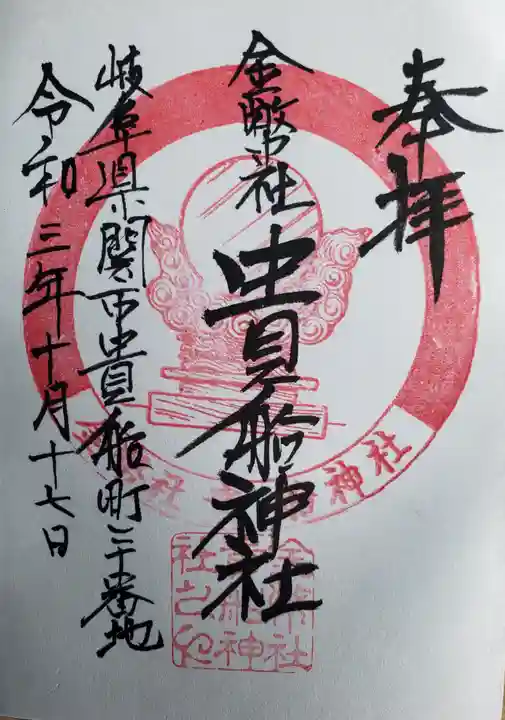 奉拝
金幣社 貴船神社
岐阜県関市貴船町三十番地
令和三年十月十七日
金幣社 貴船神社
金幣社貴船神社之印